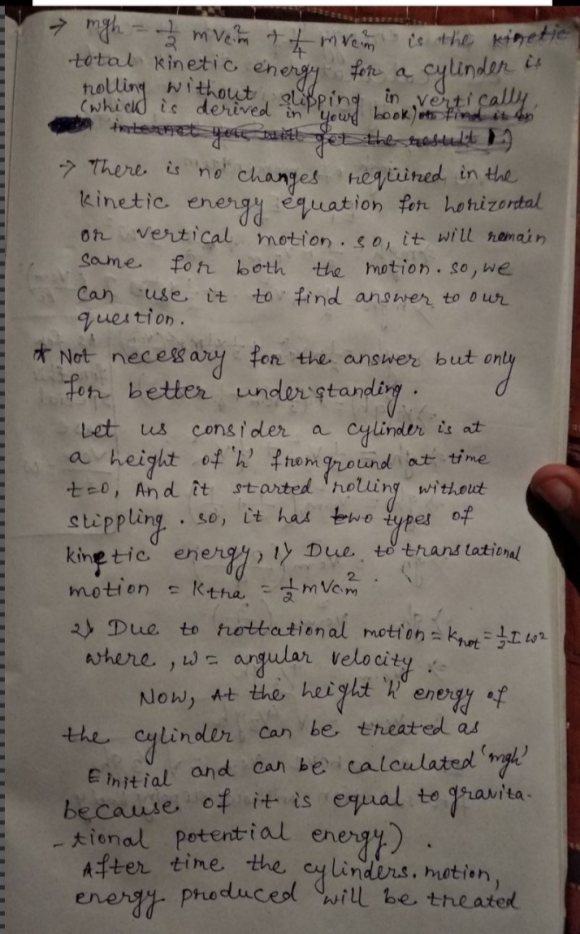 → mgh = 1/2 mVcm² + 1/4 mvcm² is the kinetic
total kinetic energy for a cylinder is
rolling without slipping in vertically
(which is derived in your book)
internet you will get the result !)
→ There is no changes required in the
kinetic energy equation for horizontal
or vertical motion. so, it will remain
same for both the motion. so, we
can use it to find answer to our
question.
* Not necessary for the answer but only
for better understanding.
Let us consider a cylinder is at
a height of 'h' from ground at time
t=0, And it started rolling without
slippling. so, it has two types of
kinetic energy, 1) Due to translational
motion = Ktra = 1/2 mVcm²
2) Due to rottational motion = Krot = 1/2 I ω²
where, ω = angular velocity.
Now, At the height 'h' energy of
the cylinder can be treated as
Einitial and can be calculated 'mgh'
because of it is equal to gravita-
-tional potential energy).
After time the cylinders. motion,
energy produced will be treated